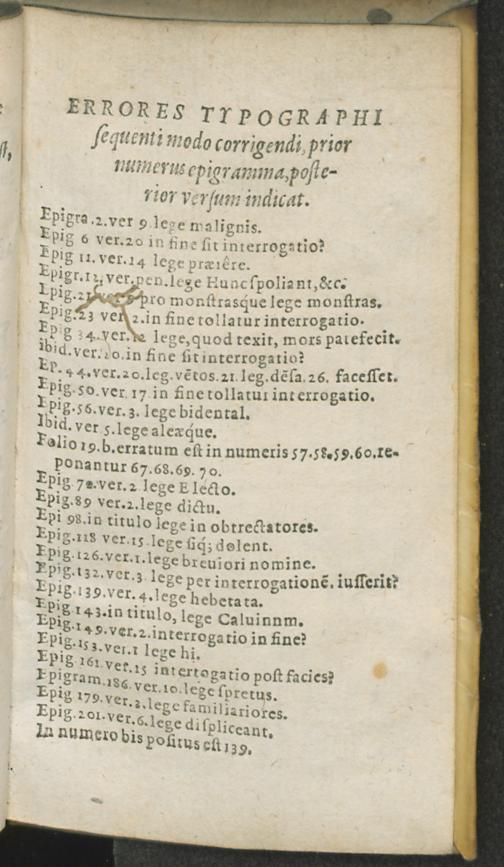 ERRORES TYPOGRAPHI
sequenti modo corrigendi, prior
numerus epigramma, poste-
rior versum indicat.
Epigra.2.ver 9 lege malignis.
Epig 6 ver.20 in fine sit interrogatio?
Epig 11.ver.14 lege
Epigr.12.ver.pen.lege Huncspoliant,&c.
Epig.21 pro monstrasque lege monstras.
Epig.23 ver 2.in fine tollatur interrogatio.
Epig 34.ver.12 lege,quod texit, mors patefecit.
Ibid.ver.20.in fine sit interrogatio?
Ep.44.ver.20.leg.vētos.21.leg.dēsa.26. facesset.
Epig.50.ver 17.in fine tollatur interrogatio.
Epig.56.ver 3. lege bidental.
Ibid. ver 5.lege aleæque.
Folio 19.b.erratum est in numeris 57.58.59.60.re-
ponantur 67.68.69.70.
Epig.72.ver.2 lege Electo.
Epig.89 ver.2.lege dictu.
Epi 98.in titulo lege in obtrectatores.
Epig.118 ver.15.lege siq; dolent.
Epig.126.ver.1.lege breuiori nomine.
Epig.132.ver.3. lege per interrogationē. iusserit?
Epig.139.ver.4.lege hebetata.
Epig 143.in titulo, lege Caluinnm.
Epig.149.ver.2.interrogatio in fine?
Epig.153.ver.1 lege hi.
Epig 161.ver.15 interrogatio post facies?
Epigram.186.ver.10.lege spretus.
Epig 179.ver.2.lege familiariores.
Epig.201.ver.6.lege displiceant.
In numero bis positus est 139.